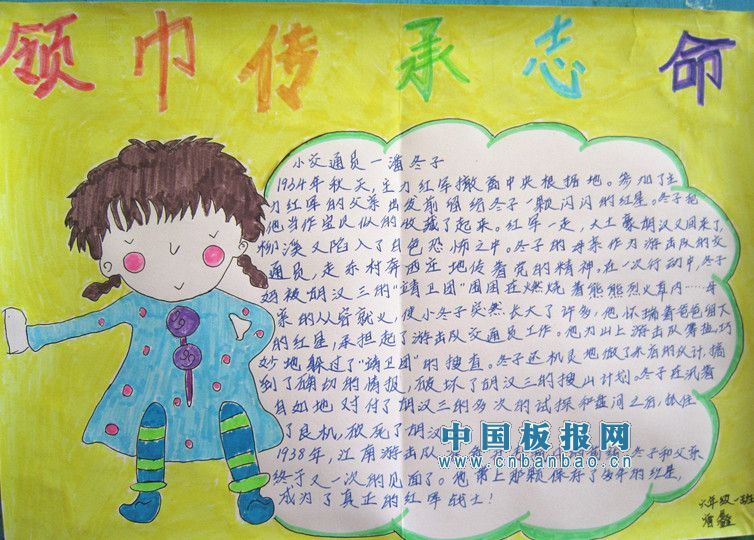 领巾传承志命
小交通员—潘冬子
1934年秋天,主力红军撤离中央根据地。参加了主
力红军的父亲出发前留给冬子一颗闪闪的红星。冬子把
他当作宝贝似的收藏了起来。红军一走,大土豪胡汉又回来了,
柳溪又陷入了白色恐怖之中。冬子的母亲作为游击队的交
通员,走东村奔西庄地传着党的精神。在一次行动中,冬子
妈被胡汉三的“靖卫团”围困在燃烧着熊熊烈火草内……母
亲的从容就义,使小冬子突然长大了许多,他怀揣着爸爸留下
的红星,承担起了游击队交通员工作。他为山上游击队筹盐,巧
妙地躲过了“靖卫团”的搜查。冬子还机灵地做了米店的伙计,搞
到了确切的情报,破坏了胡汉三的搜山计划。冬子在沉着
自如地对付了胡汉三的多次的试探和盘问之后,抓住
了良机,砍死了胡汉
1938年,江南游击队 冬子和父亲
终于又一次的见面了。他带上那颗保存了多年的红星,
成为了真正的红军战士!
中国板报网
www.cnbanbao.cn
六年级一班